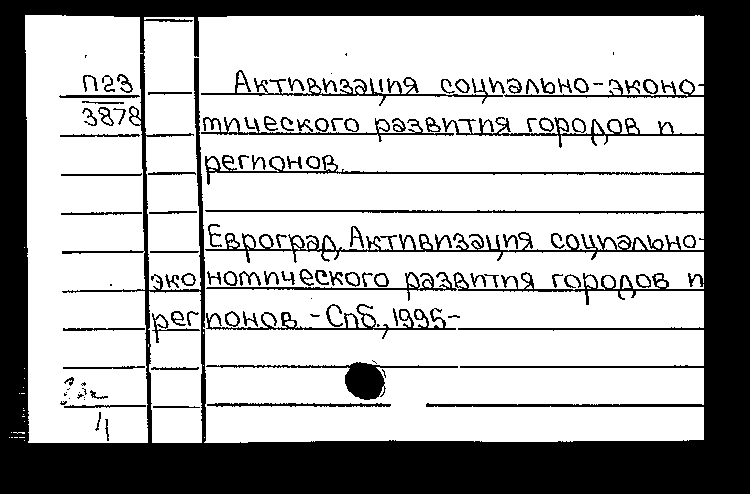 П23
3878
Активизация социально-эконо-
мического развития городов и
регионов.
Евроград, Активизация социально-
экономического развития городов и
регионов. - Спб, 1995-